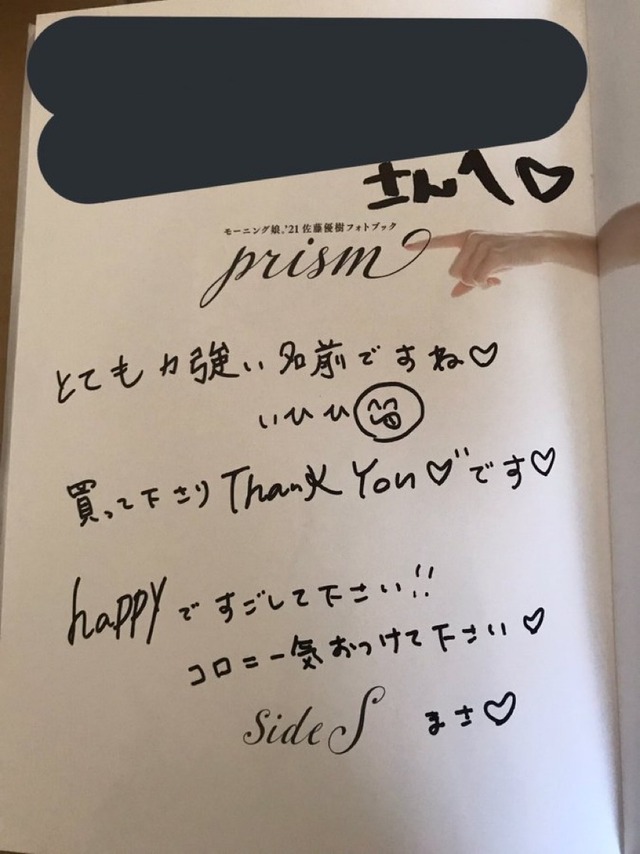 さんへ♡
モーニング娘。'21 佐藤優樹フォトブック
prism
とても力強い名前ですね♡
いひひ
買って下さり Thank You♡"です♡
happyですごして下さい!!
コロニー気おつけて下さい♡
side S まさ♡